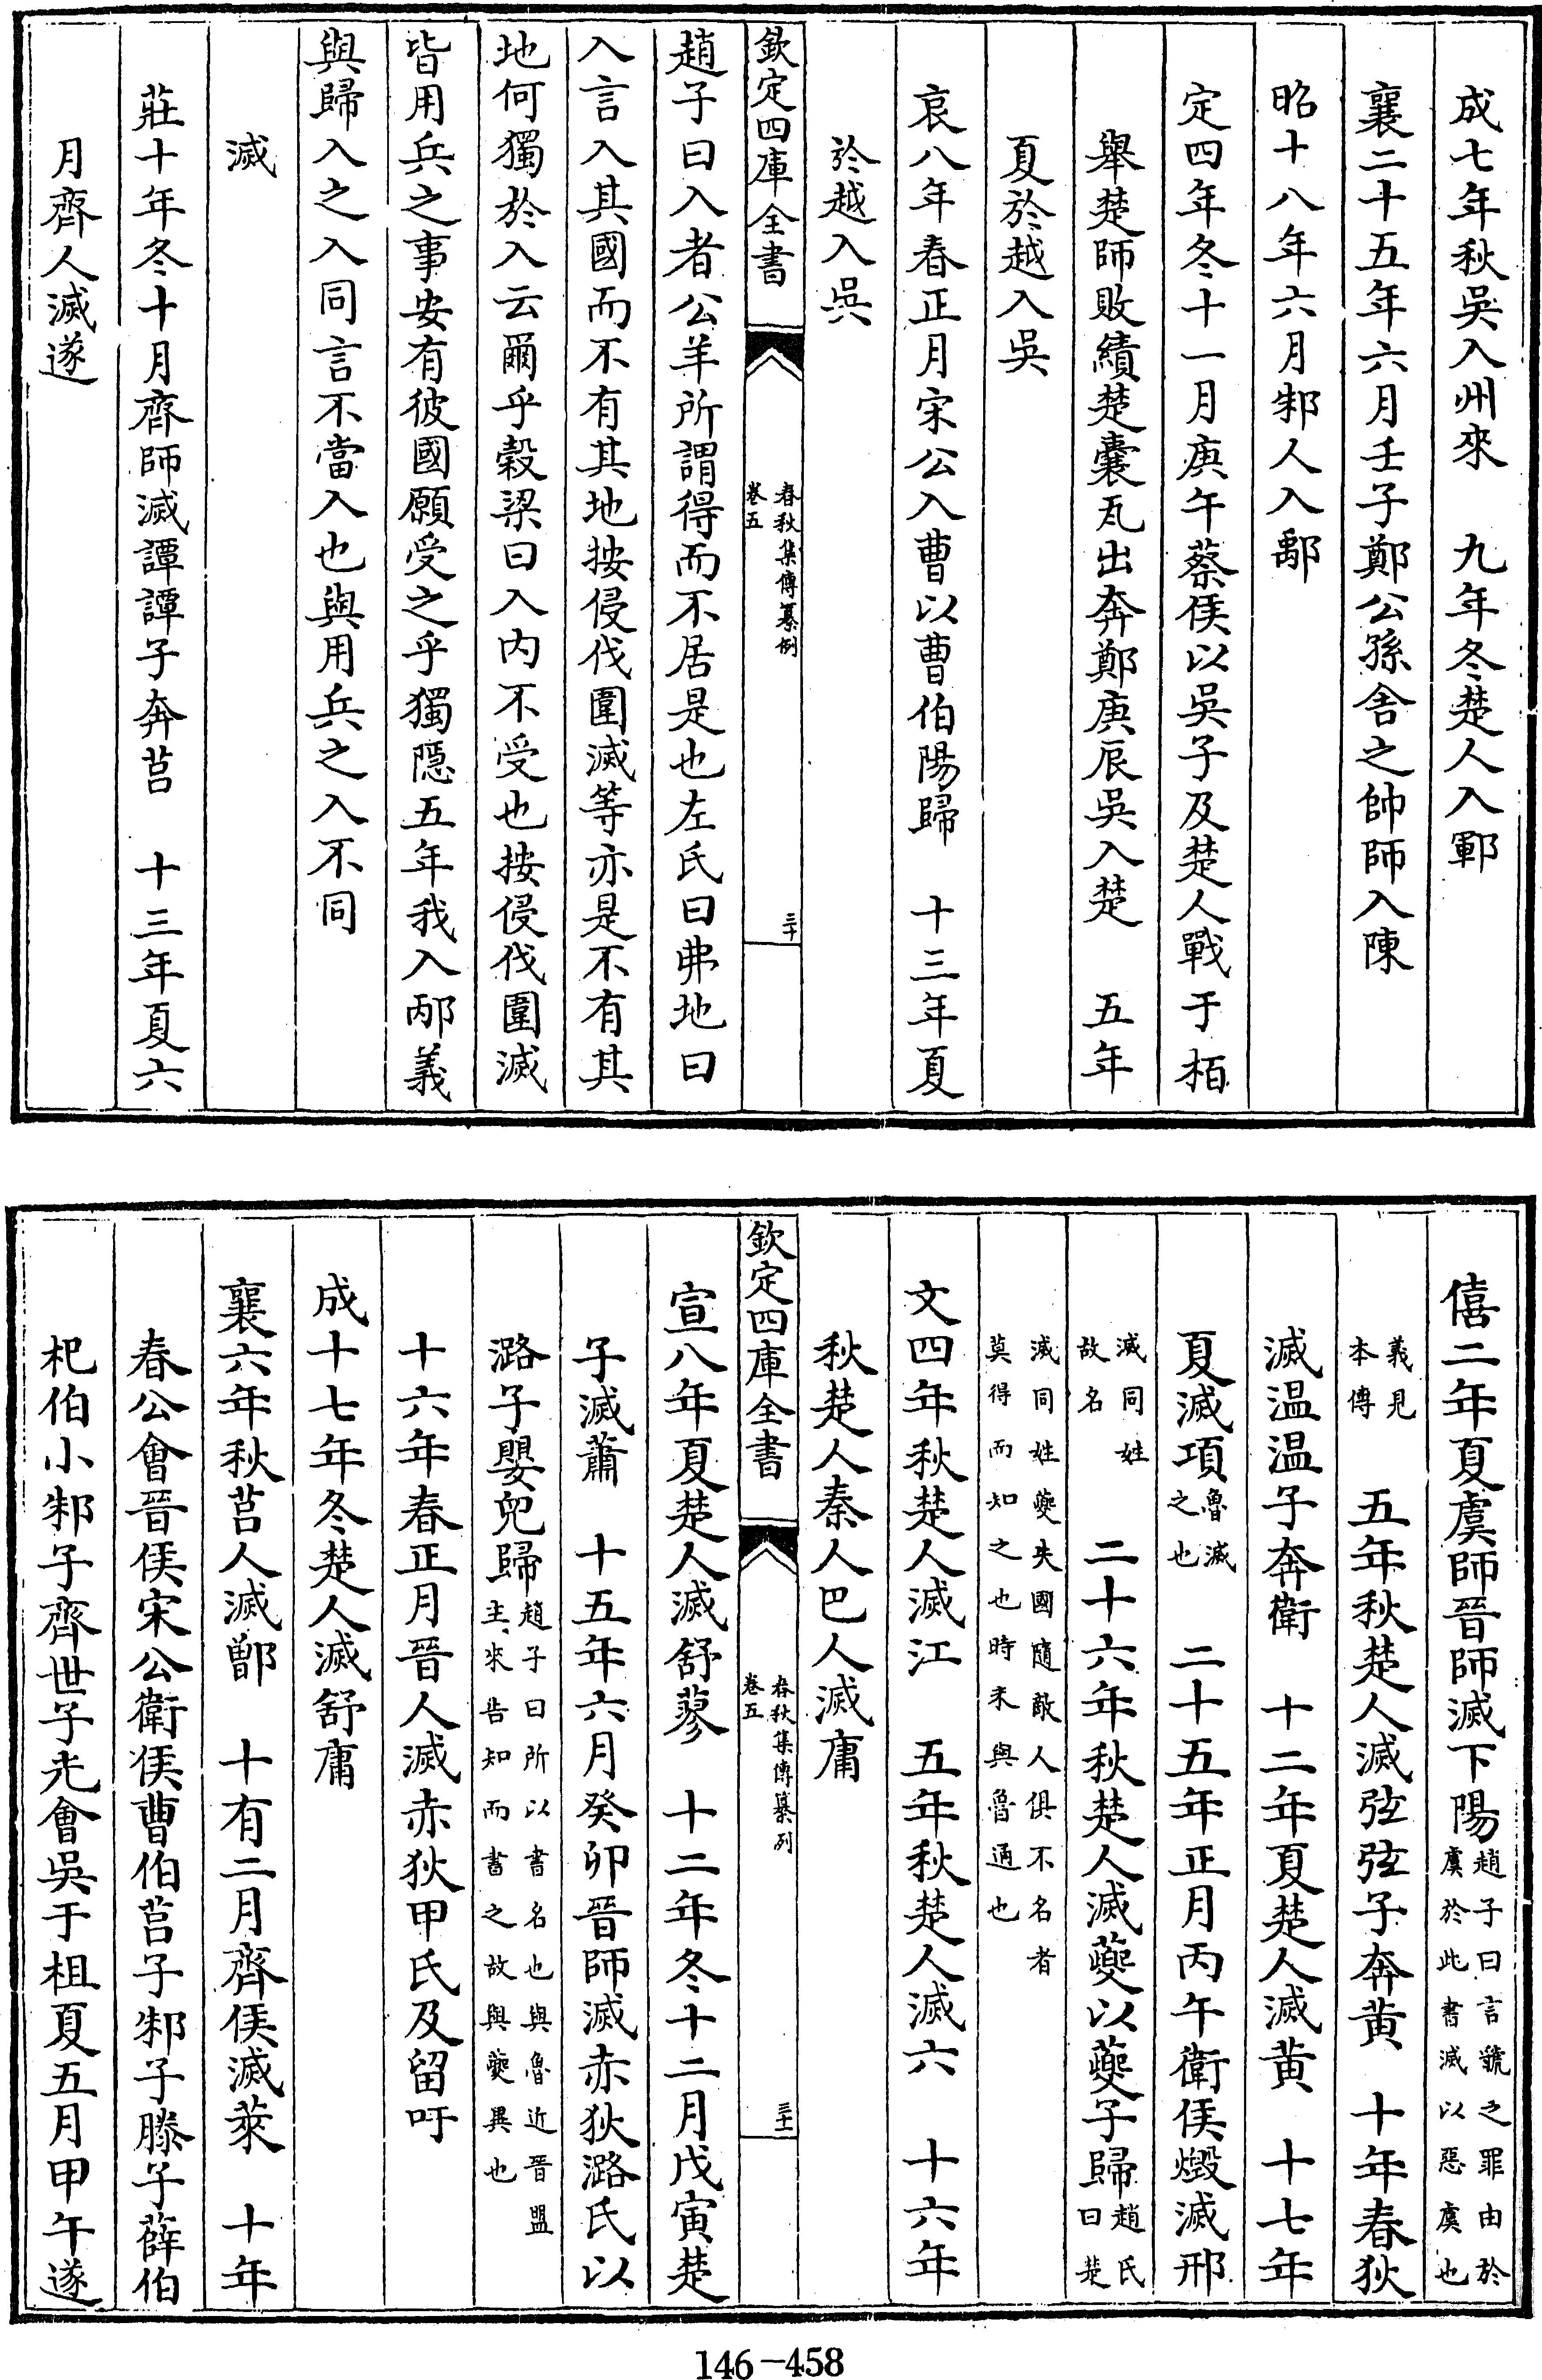 成七年秋吳入州來　九年冬楚人入鄆
襄二十五年六月壬子鄭公孫舍之帥師入陳
昭十八年六月邾人入鄅
定四年冬十一月庚午蔡侯以吳子及楚人戰于栢
舉楚師敗績楚囊瓦出奔鄭庚辰吳入楚　五年
夏於越入吳
哀八年春正月宋公入曹以曹伯陽歸　十三年夏
於越入吳
欽定四庫全書
春秋集傳纂例
卷五
三十
趙子曰入者公羊所謂得而不居是也左氏曰弗地曰
入言入其國而不有其地按侵伐圍滅等亦是不有其
地何獨於入云爾乎榖梁曰入内不受也按侵伐圍滅
皆用兵之事安有彼國願受之乎獨隱五年我入邴義
與歸入之入同言不當入也與用兵之入不同
滅
莊十年冬十月齊師滅譚譚子奔莒　十三年夏六
月齊人滅遂
僖二年夏虞師晉師滅下陽趙子曰言虢之罪由於
虞於此書滅以惡虞也
義見
本傳
五年秋楚人滅弦弦子奔黄　十年春狄
滅温温子奔衛　十二年夏楚人滅黄　十七年
夏滅項魯滅
之也
二十五年正月丙午衛侯燬滅邢
滅同姓
故名
二十六年秋楚人滅夔以夔子歸趙氏
曰楚
滅同姓夔失國隨敵人俱不名者
莫得而知之也時未與魯通也
文四年秋楚人滅江　五年秋楚人滅六　十六年
秋楚人秦人巴人滅庸
欽定四庫全書
春秋集傳纂列
卷五
三十一
宣八年夏楚人滅舒蓼　十二年冬十二月戊寅楚
子滅蕭　十五年六月癸卯晉師滅赤狄潞氏以
潞子嬰兒歸趙子曰所以書名也與魯近晉盟
主來告知而書之故與夔異也
十六年春正月晉人滅赤狄甲氏及留吁
成十七年冬楚人滅舒庸
襄六年秋莒人滅鄫　十有二月齊侯滅萊　十年
春公會晉侯宋公衛侯曹伯莒子邾子滕子薛伯
杞伯小邾子齊世子光會吳于柤夏五月甲午遂
146-458